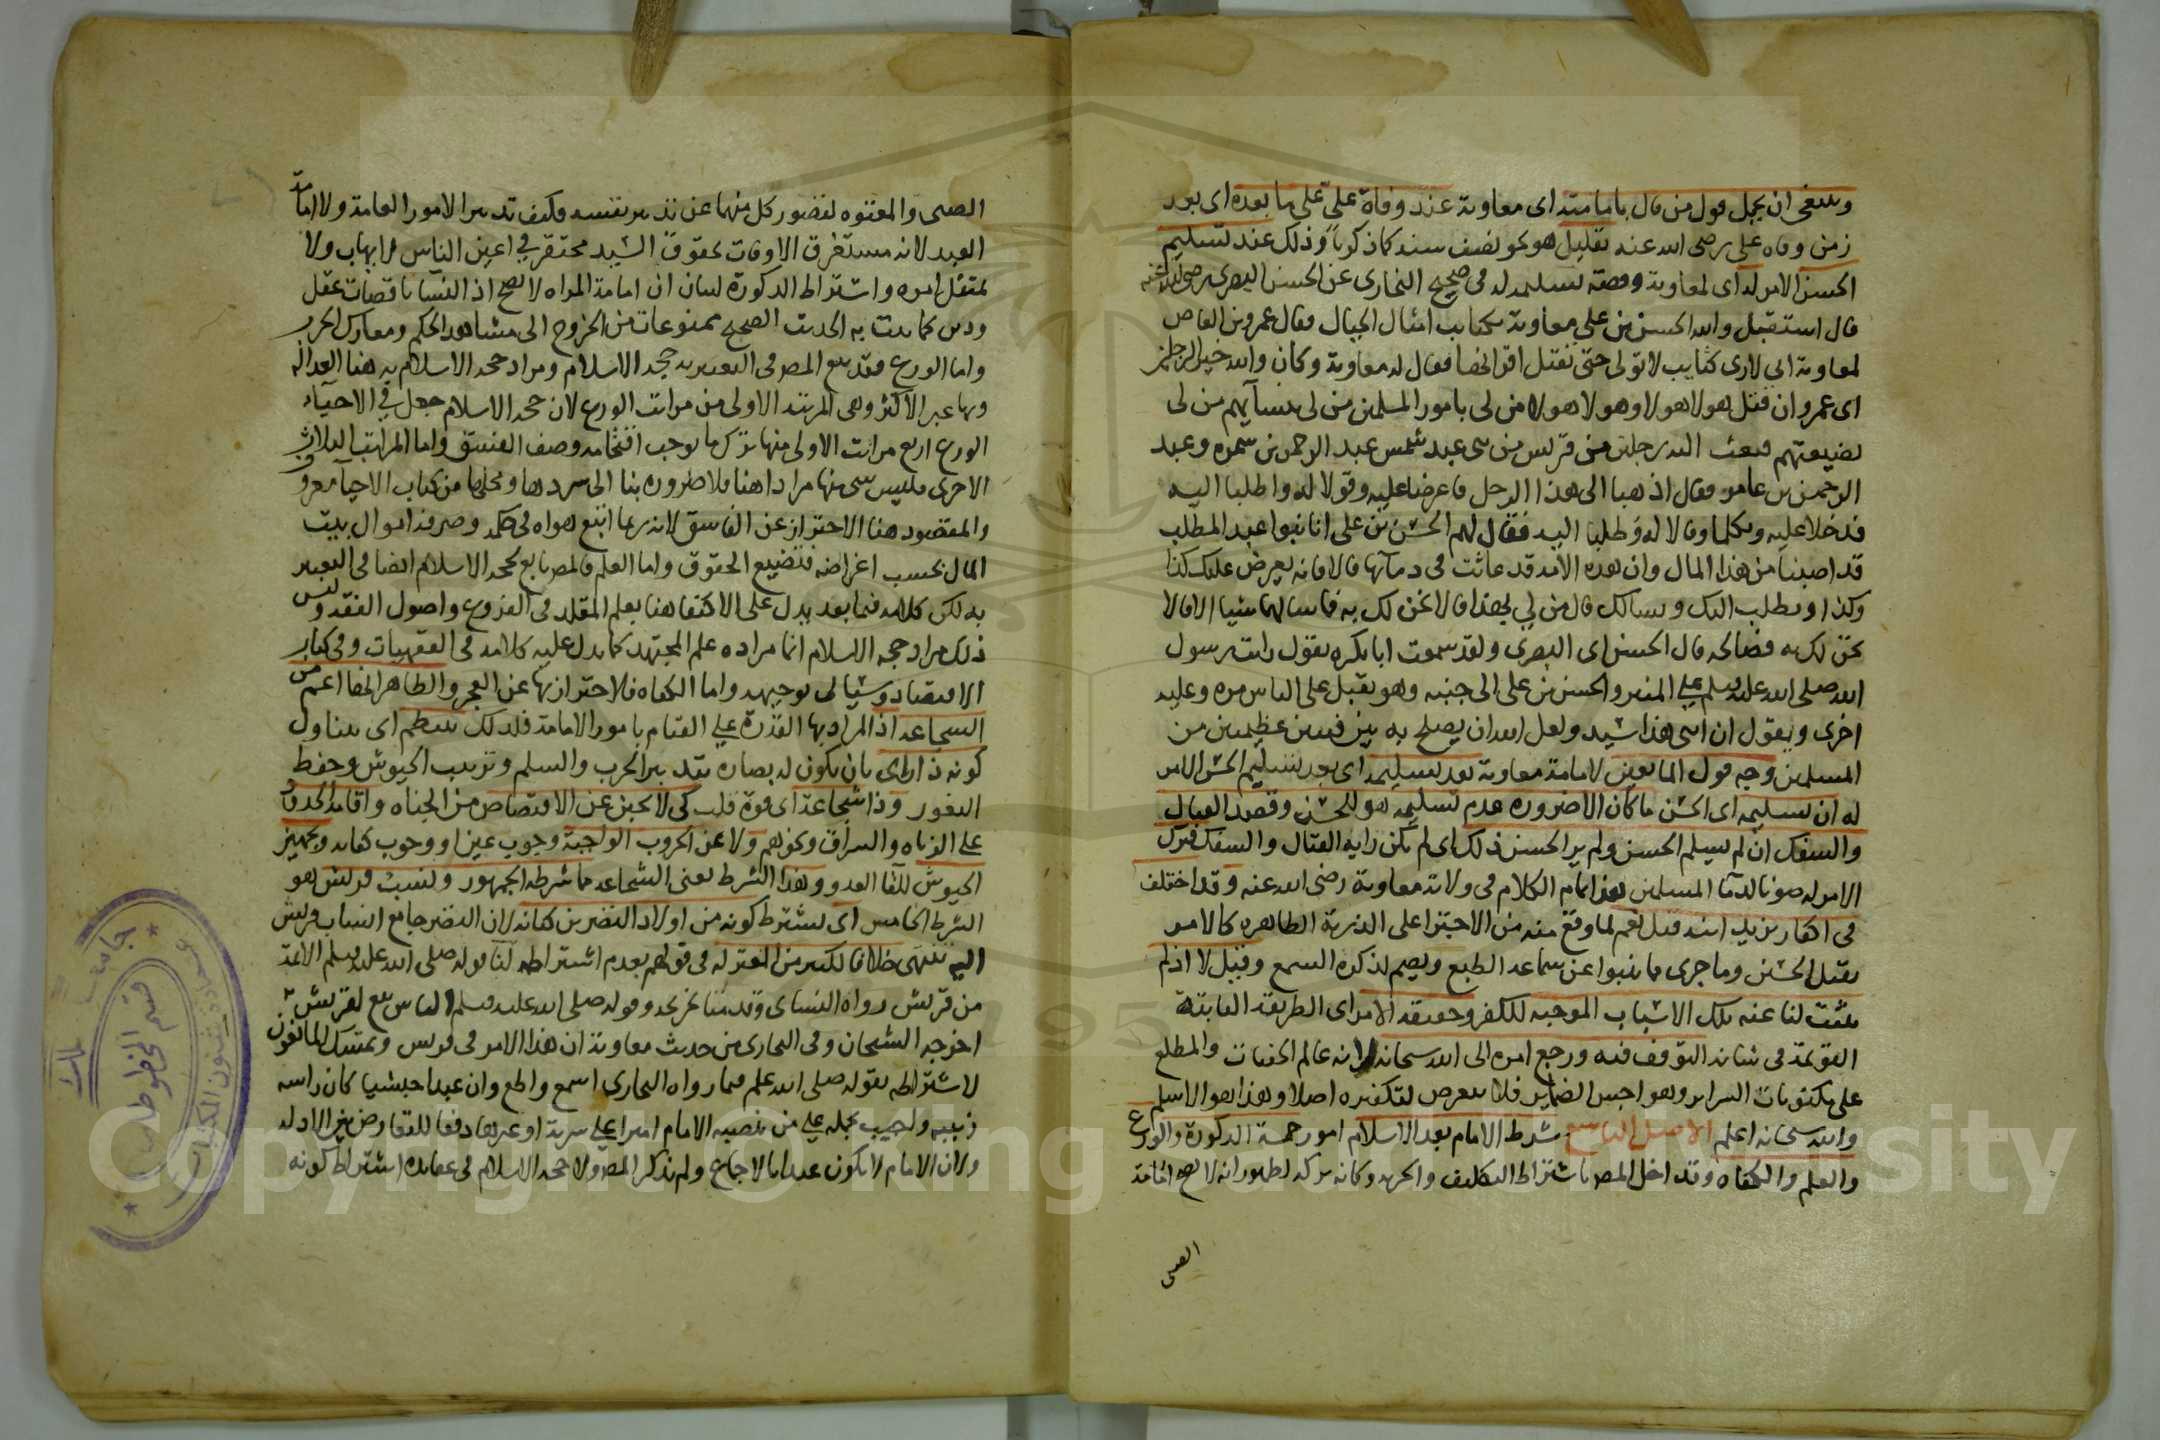 وينبغي ان يحمل قول من قال بامامته اى معاوية عند وفاة علي على ما بعده اى بعد
زمن وفاه على رضى الله عنه بقليل هو نحو نصف سنه كما ذكرنا وذلك عند تسليم
الحسن الامر له اى لمعاوية وقصة تسليمه له فى صحيح البخارى عن الحسن البصرى رضى الله عنه
قال استقبل والله الحسن بن علي معاوية بكتايب امثال الجبال فقال عمرو بن العاص
لمعاوية انى لارى كتايب لا تولى حتى تقتل اقرانها فقال له معاوية وكان والله خير الرجلين
اى عمرو ان قتل هولا هولا وهولا هولا من لى بامور المسلمين من لى بنسآيهم من لى
بضيعتهم فبعث اليه رجلين من قريش من بنى عبد شمس عبد الرحمن بن سمره وعبد
الرحمن بن عامر فقال اذهبا الى هذا الرجل فاعرضا عليه وقولا له واطلبا اليه
فدخلا عليه وتكلما وقالا له وطلبا اليه فقال لهم الحسن بن على انا بنوا عبد المطلب
قد اصبنا من هذا المال وان هذه الأمه قد عاثت فى دمآئها قالا فانه يعرض عليك كذا
وكذا ويطلب اليك ويسالك قال من لي بهذا قالا نحن لك به فما سالهما شيا الا قالا
نحن لك به فصالحه قال الحسن اى البصرى ولقد سمعت ابا بكره يقول رايت رسول
الله صلى الله عليه وسلم على المنبر والحسن بن على الى جنبه وهو يقبل على الناس مره وعليه
اخرى ويقول ان ابنى هذا سيد ولعل الله ان يصلح به بين فئتين عظيمتين من
المسلمين وجه قول المانعين لامامة معاوية بعد تسليمه اى بعد تسليم الحسن الامر
له ان تسليمه اى الحسن ما كان الا ضروره عدم تسليمه هو للحسن وقصد القتال
والسفك ان لم يسلم الحسن ولم ير الحسن ذلك اى لم يكن رايه القتال والسفك فترك
الامر له صونا لدمآ المسلمين هذا تمام الكلام فى ولاية معاوية رضى الله عنه وقد اختلف
فى اكفار يزيد ابنه قيل نعم لما وقع منه من الاجترا على الذرية الطاهره كالامر
بقتل الحسين وما جرى مما ينبوا عن سماعه الطبع ويصم لذكره السمع وقيل لا اذ لم
يثبت لنا عنه تلك الاسباب الموجبه للكفر وحقيقة الامر اى الطريقه الثابتة
القويمة فى شانه التوقف فيه ورجع امره الى الله سبحانه لانه عالم الخفيات والمطلع
على مكنونات السراير وهواجس الضماير فلا يتعرض لتكفيره اصلا وهذا هو الاسلم
والله سبحانه اعلم الاصل التاسع شرط الامام بعد الاسلام امور خمسة الذكورة والورع
والعلم والكفاه وقد اخل المص باشتراط التكليف والحريه وكانه تركه لظهور انه لا تصح امامة
الصبى
الصبى والمعتوه لقصور كل منهما عن تدبير نفسه فكيف تدبير الامور العامة ولا امامة
العبد لانه مستغرق الاوقات بحقوق السيد محتقر في اعين الناس لا يهاب ولا
يمتثل امره واشتراط الذكورة لبيان ان امامة المراه لا تصح اذ النسآ ناقصات عقل
ودين كما ثبت به الحديث الصحيح ممنوعات من الخروج الى مشاهد الحكم ومعارك الحرب
واما الورع فقد تبع المص فى التعبير به حجة الاسلام ومراد حجه الاسلام به هنا العداله
وبها عبر الاكثر وهى المرتبه الاولى من مراتب الورع لان حجه الاسلام جعل في الاحيآء
الورع اربع مراتب الاولى منها ترك ما يوجب اقتحامه وصف الفسق واما المراتب الثلاث
الاخرى فليس شى منها مرادا هنا فلا ضروره بنا الى سردها ومحلها من كتاب الاحيآ معروف
والمقصود هنا الاحتراز عن الفاسق لانه ربما اتبع هواه فى حكمه وصرفه اموال بيت
المال بحسب اغراضه فتضيع الحقوق واما العلم فالمص تابع لحجه الاسلام ايضا فى التعبير
به لكن كلامه فيما بعد يدل على الاكتفا هنا بعلم المقلد فى الفروع واصول الفقه وليس
ذلك مراد حجه الاسلام انما مراده علم المجتهد كما يدل عليه كلامه فى الفقهيات وفى كتاب
الاقتصاد وسياتى توجيهه واما الكفاه فلاحترازبها عن العجز والظاهر انها اعم من
الشجاعه اذ المراد بها القدرة علي القيام بامور الامامة فلذلك تنتظم اى تتناول
كونه ذا راى بان يكون له بصاره بتدبير الحرب والسلم وترتيب الجيوش وحفظ
الثغور وذا شجاعة اى قوة قلب كى لا يجبن عن الاقتصاص من الجناه واقامة الحدود
على الزناه والسراق ونحوهم ولا عن الحروب الواجبة وجوب عين او وجوب كفايه وتجهيز
الجيوش للقا العدو وهذا الشرط يعنى الشجاعه مما شرطه الجمهور ونسب قريش هو
الشرط الخامس اى يشترط كونه من اولاد النضر بن كنانه لان النضر جامع انساب قريش
اليه تنتهى خلافا لكثير من المعتزله فى قولهم بعدم اشتراطه لنا قوله صلى الله عليه وسلم الائمة
من قريش رواه النساى وقدمنا تخريجه وقوله صلى الله عليه وسلم الناس تبع لقريش
اخرجه الشيخان وفى البخارى من حديث معاوية ان هذا الامر فى قريش وتمسك المانعون
لاشتراطه بقوله صلى الله عليه وسلم فيما رواه البخارى اسمع واطع وان عبدا حبشيا كان راسه
زبيبه واجيب بحمله علي من ينصبه الامام اميرا علي سرية او غيرها دفعا للتعارض بين الادله
ولان الامام لا يكون عبدا بالاجماع ولم يذكر المص ولا حجه الاسلام فى عقايده اشتراط كونه
جامعة
قسم المخطوطات
عمادة شئون المكتبات
Copyright © King Saud University
195